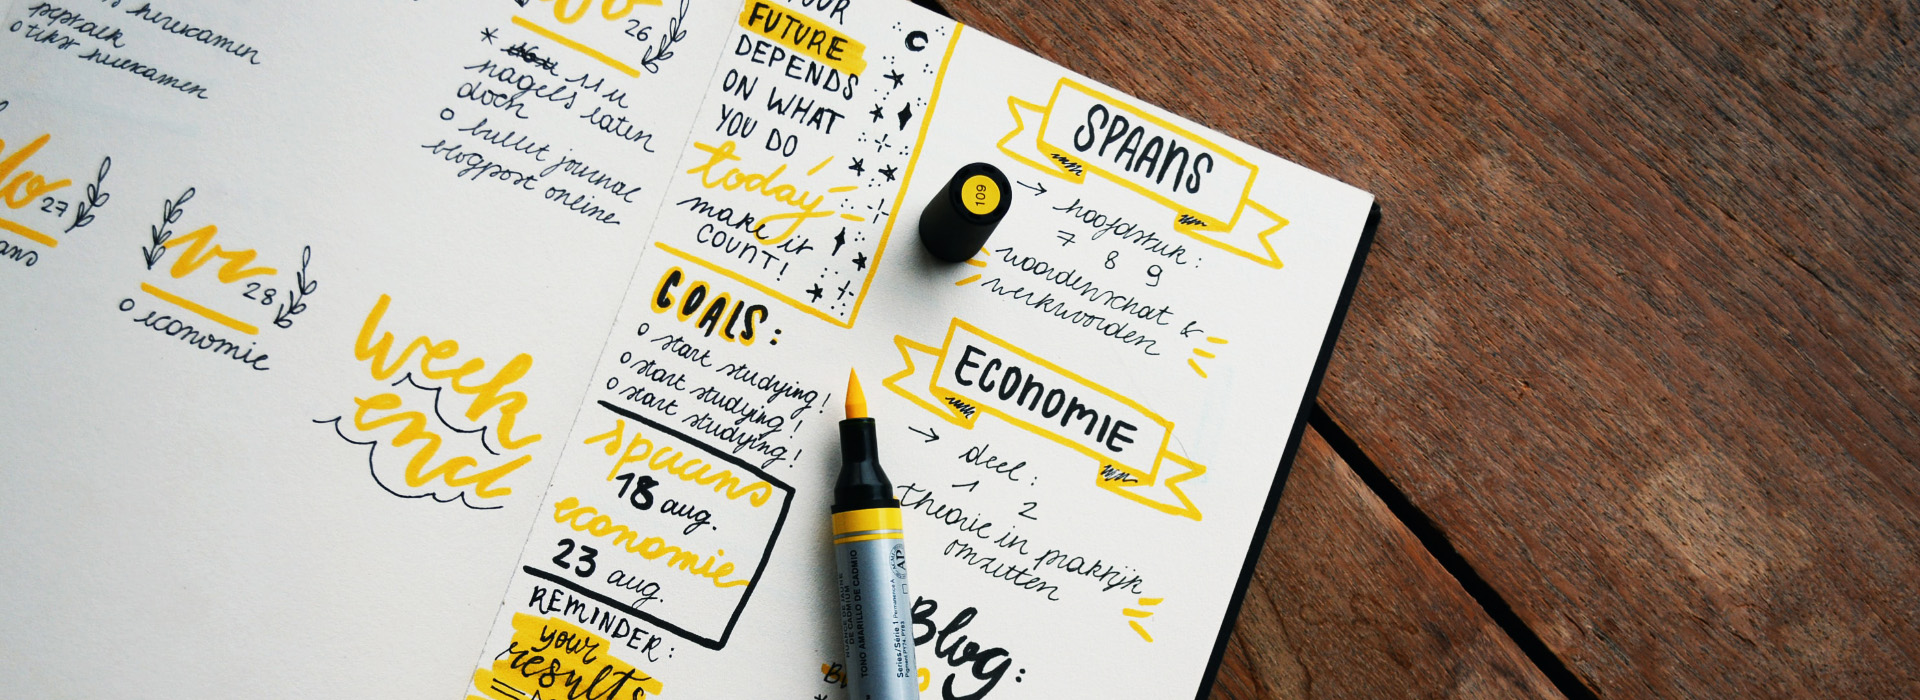 huiskamer
26
* 11 u
nagels laten
doen
o bullet journal
blogpost online
27
vr 28
o economie
week
end
YOUR
FUTURE
DEPENDS
ON WHAT
YOU DO
today
make it
COUNT!
GOALS:
o start studying!
o start studying!
o start studying!
spaans
18 aug.
economie
23 aug.
REMINDER:
your
results
SPAANS
→ hoofdstuk:
7 8 9
woordenschat &
werkwoorden
ECONOMIE
→ deel:
1 2
theorie in praktijk
omzetten
Blog:
109
TONO AMARILLO DE CADMIO
DE CADMIUM
Series/Série 1
AP